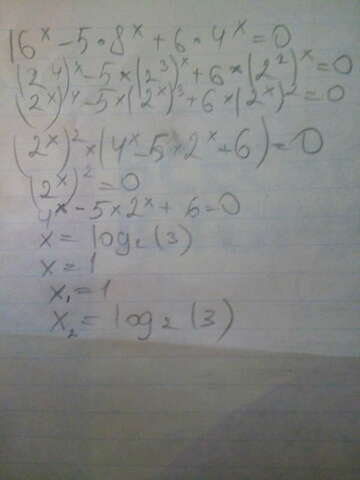 16^x - 5 · 8^x + 6 · 4^x = 0
(2^4)^x - 5 × (2^3)^x + 6 × (2^2)^x = 0
(2^x)^4 - 5 × (2^x)^3 + 6 × (2^x)^2 = 0
(2^x)^2 × (4^x - 5 × 2^x + 6) = 0
(2^x)^2 = 0
4^x - 5 × 2^x + 6 = 0
x = log₂(3)
x = 1
x₁ = 1
x₂ = log₂(3)